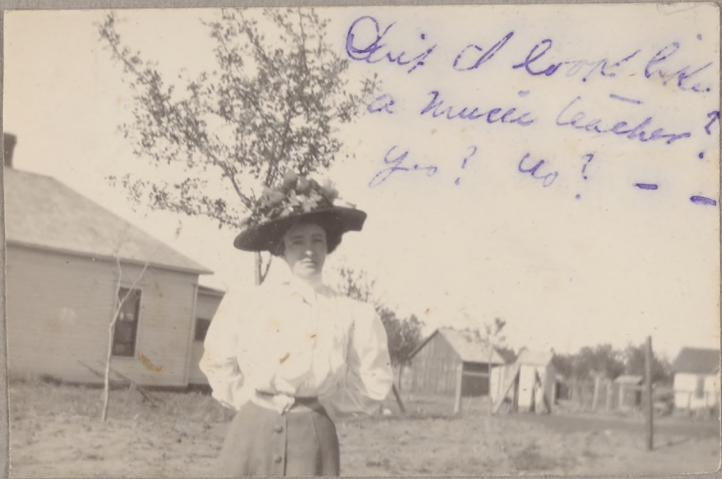 Don't I look like
a music teacher?
Yes? No? - -